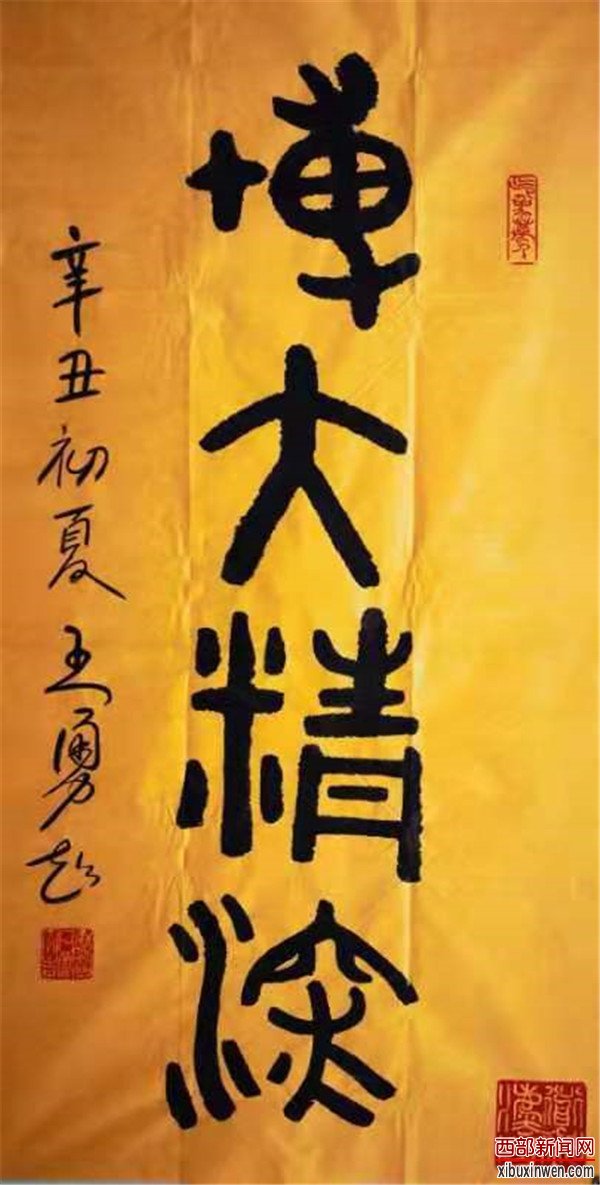 博大精深
辛丑初夏王勇超
西部新闻网
xibuxinwen.com